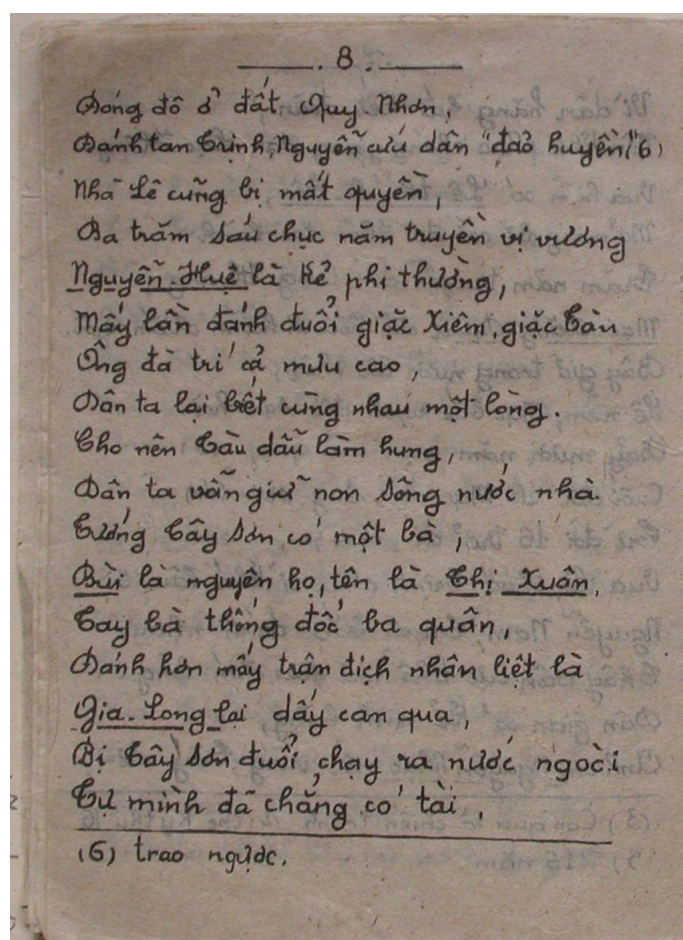 8
Đóng đô ở đất Quy Nhơn,
Đánh tan Trịnh, Nguyễn cứu dân "đảo huyền" (6)
Nhà Lê cũng bị mất quyền,
Ba trăm sáu chục năm truyền vị vương
Nguyễn Huệ là kẻ phi thường,
Mấy lần đánh đuổi giặc Xiêm, giặc Tàu
Ông đà trí cả mưu cao,
Dân ta lại biết cùng nhau một lòng.
Cho nên Tàu dẫu làm hung,
Dân ta vẫn giữ non sông nước nhà.
Tướng Tây Sơn có một bà,
Bùi là nguyên họ, tên là Thị Xuân,
Tay bà thống đốc ba quân,
Đánh hơn mấy trận địch nhân liệt là
Gia-Long lại dấy can qua,
Bị Tây Sơn đuổi, chạy ra nước ngoài
Tự mình đã chẳng có tài,
(6) trao ngược.